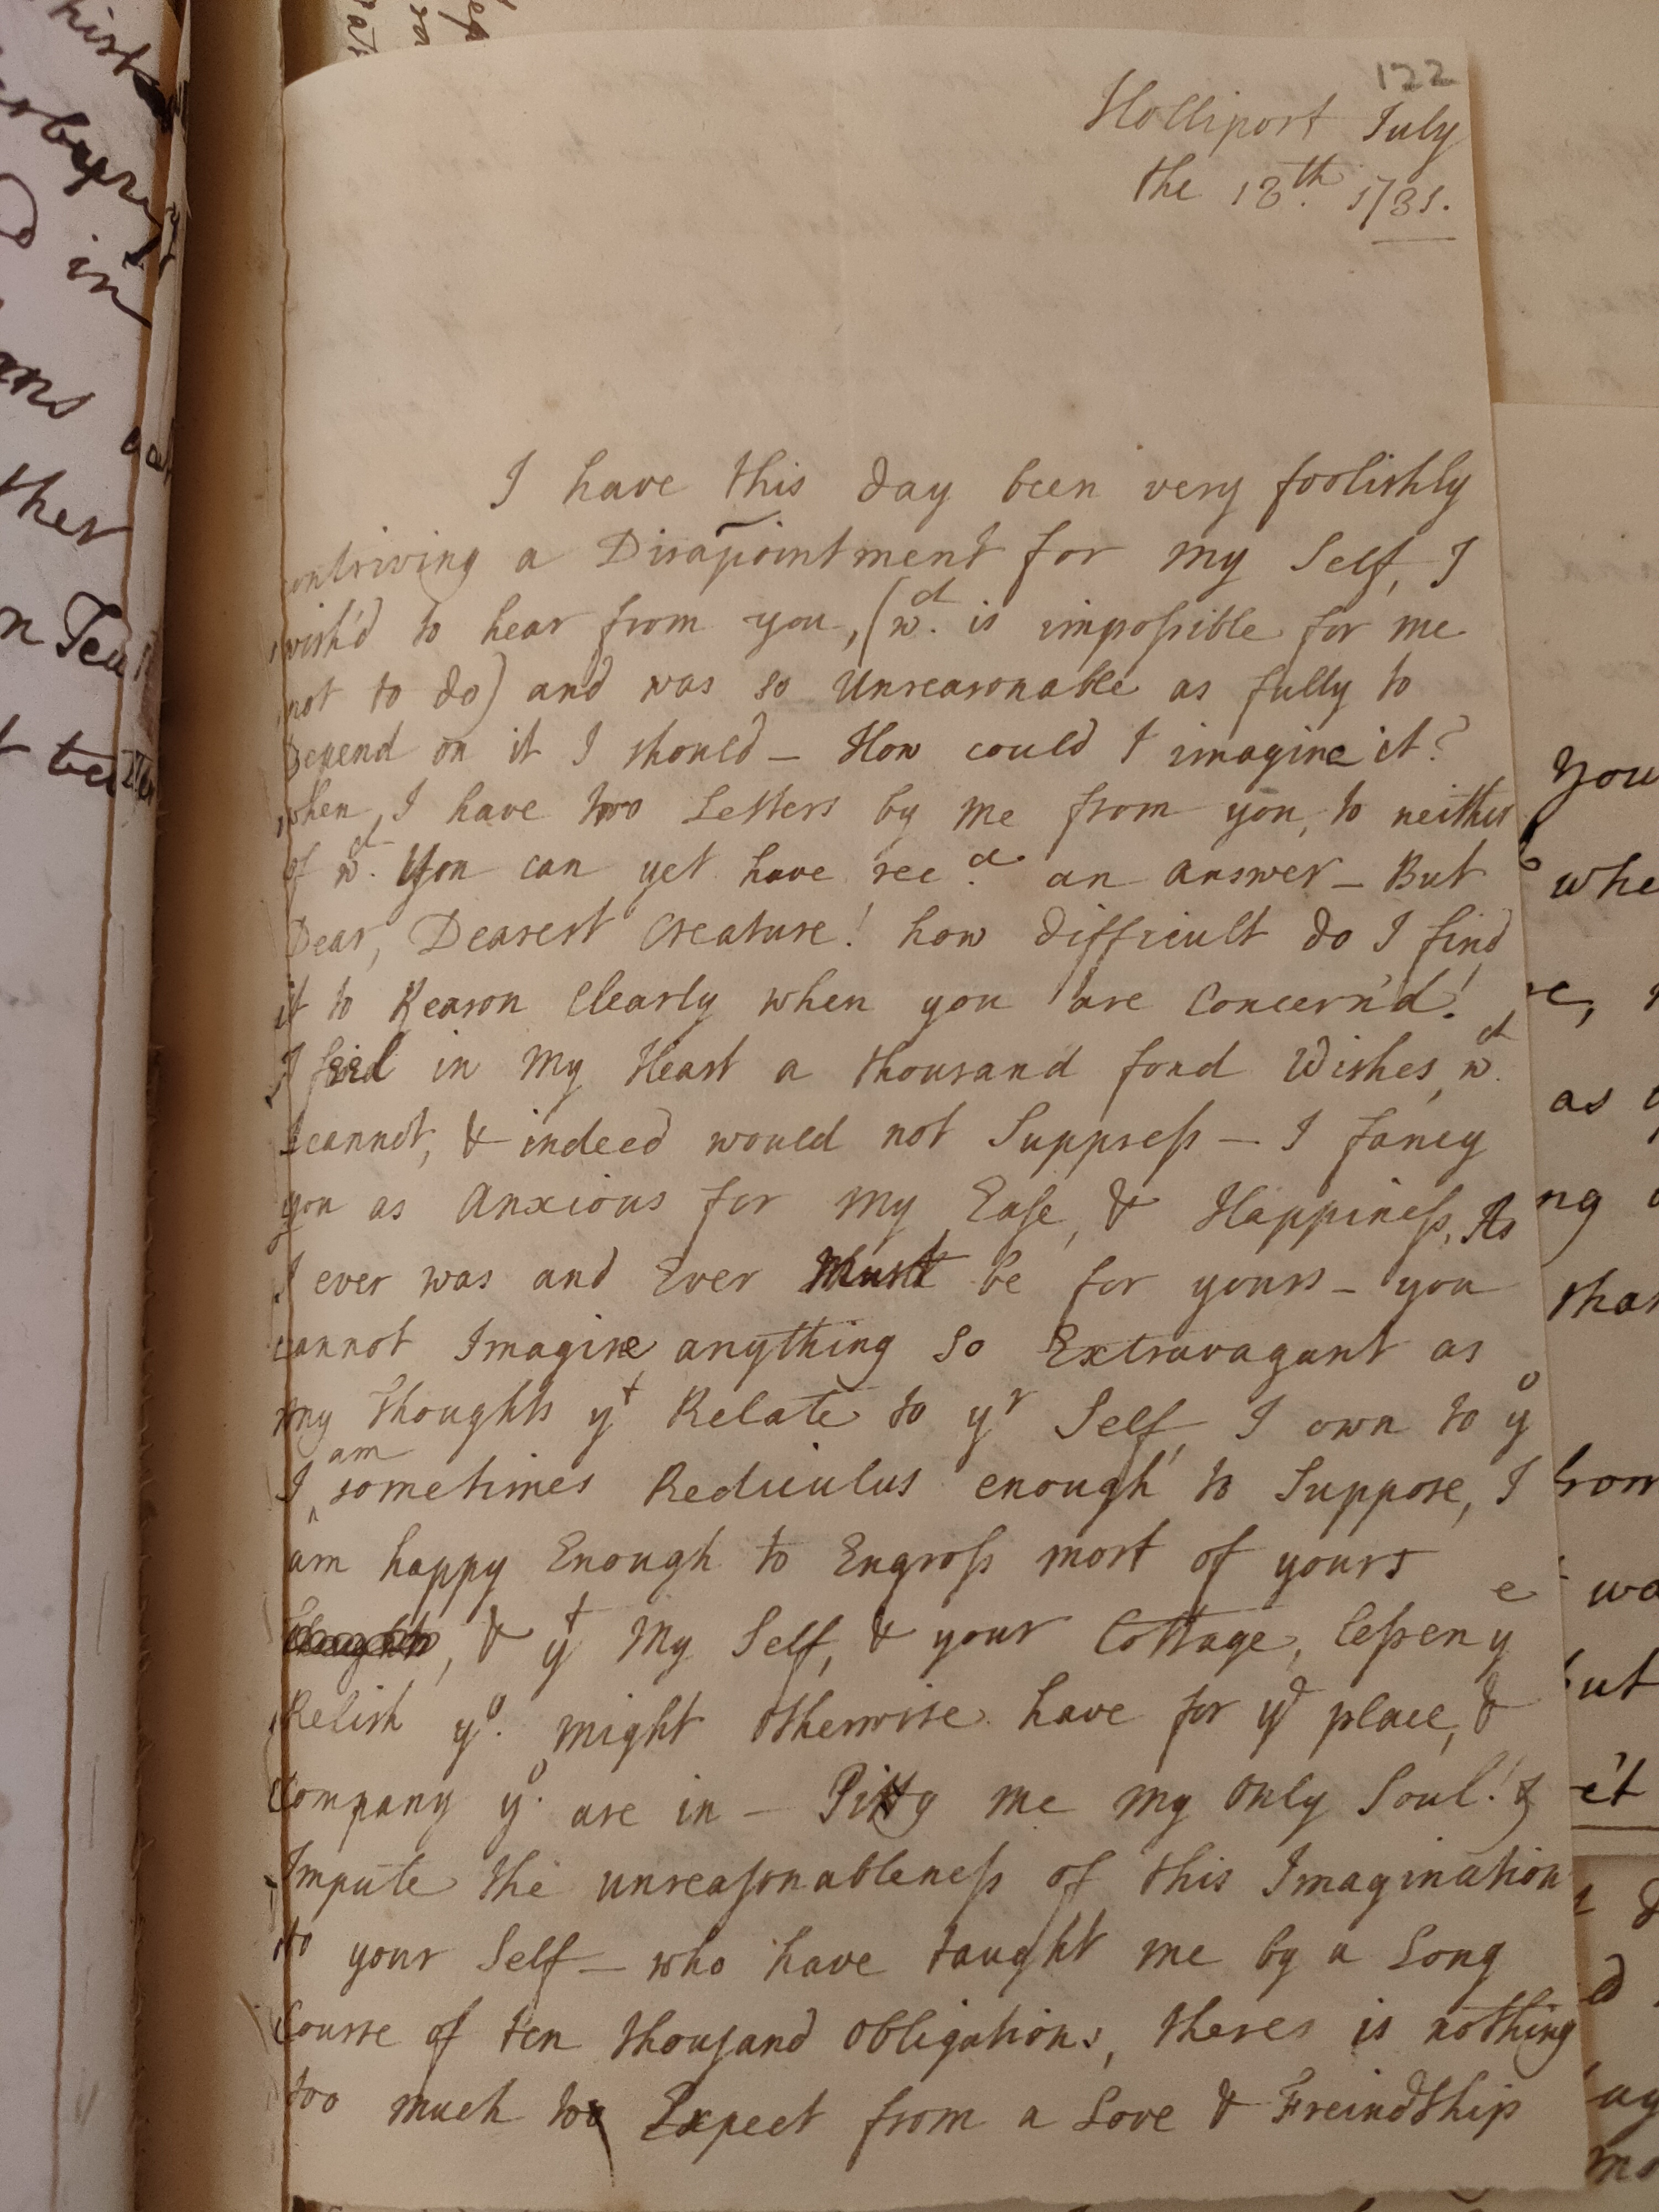 122
Holliport July
the 18th. 1731.
I have this day been very foolishly
ontriving a Disapointment for my Self, I
wish'd to hear from you, (wch. is impossible for me
not to do) and was so Unreasonable as fully to
Depend on it I should — How could I imagine it?
when I have two Letters by me from you, to neither
of wch. You can yet have recd. an answer — But
Dear, Dearest Creature! how difficult do I find
it to Reason Clearly when you are Concern'd!
I feel in My Heart a thousand fond Wishes, wch.
I cannot, & indeed would not Suppress — I fancy
you as Anxious for My Ease, & Happiness, As
I ever was and Ever Must be for yours — you
cannot Imagine anything so Extravagant as
my Thoughts yt Relate to yr Self, I own to yo
am
I ^ sometimes Rediculus enough to Suppose, I
am happy Enough to Engross most of yours
, & yt My Self, & your Cottage, lessen ye
Relish yo. might Otherwise have for ye place, &
Company yo. are in — Pitty me my only Soul! &
Impute the unreasonableness of this Imagination
to your Self — who have taught me by a Long
Course of ten thousand Obligations, theres is nothing
too much to Expect from a Love & Freindship
his
in
ther
You
whe
as
ng
that
from
wa
ut
et